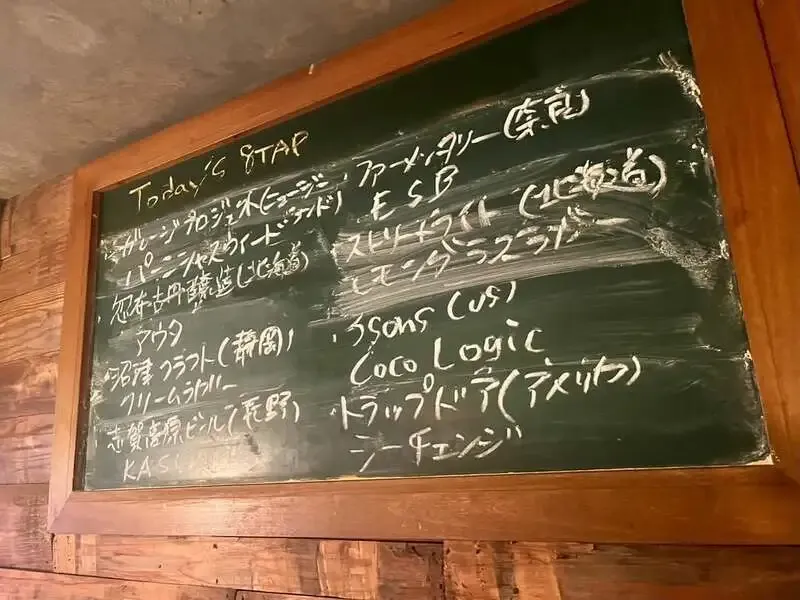 Today's 8TAP
・ガレージプロジェクト(ニュージーランド)
パーニシャスウィード
・忽布古丹醸造(北海道)
アウタ
・沼津クラフト(静岡)
クリームラガー
・志賀高原ビール(長野)
・ファーメンタリー(奈良)
ESB
・ストリームライト(北海道)
レモングラスラガー
・3sons (US)
Coco Logic
・トラップドア(アメリカ)
シーチェンジ